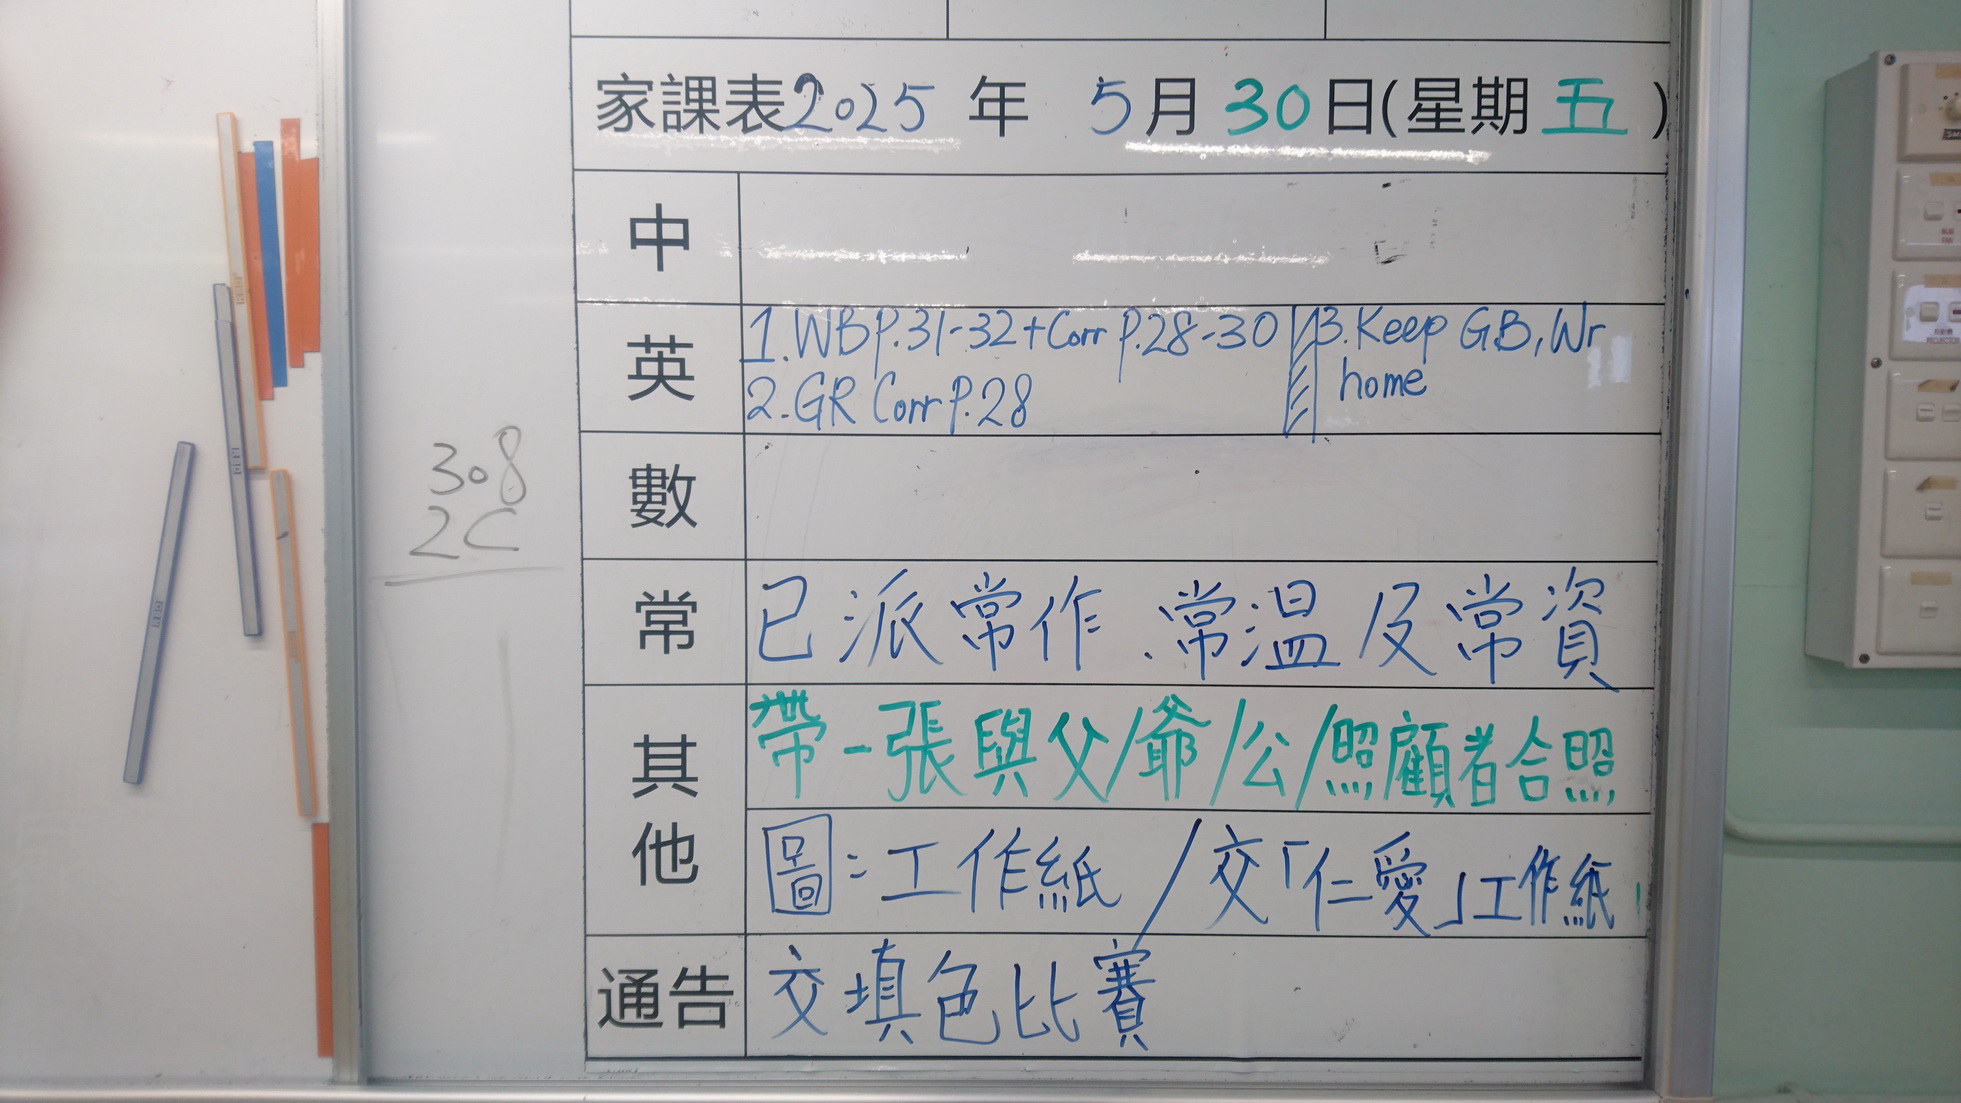 家課表2025年 5月30日(星期五)
中
英
1.WB P.31-32+Corr P.28-30
2.GR Corr P.28
3.Keep GB, Wr
home
數
308
2C
常
已派常作、常溫及常資
其他
帶一張與父/爺/公/照顧者合照
圖:工作紙/交「仁愛」工作紙
通告
交填色比賽